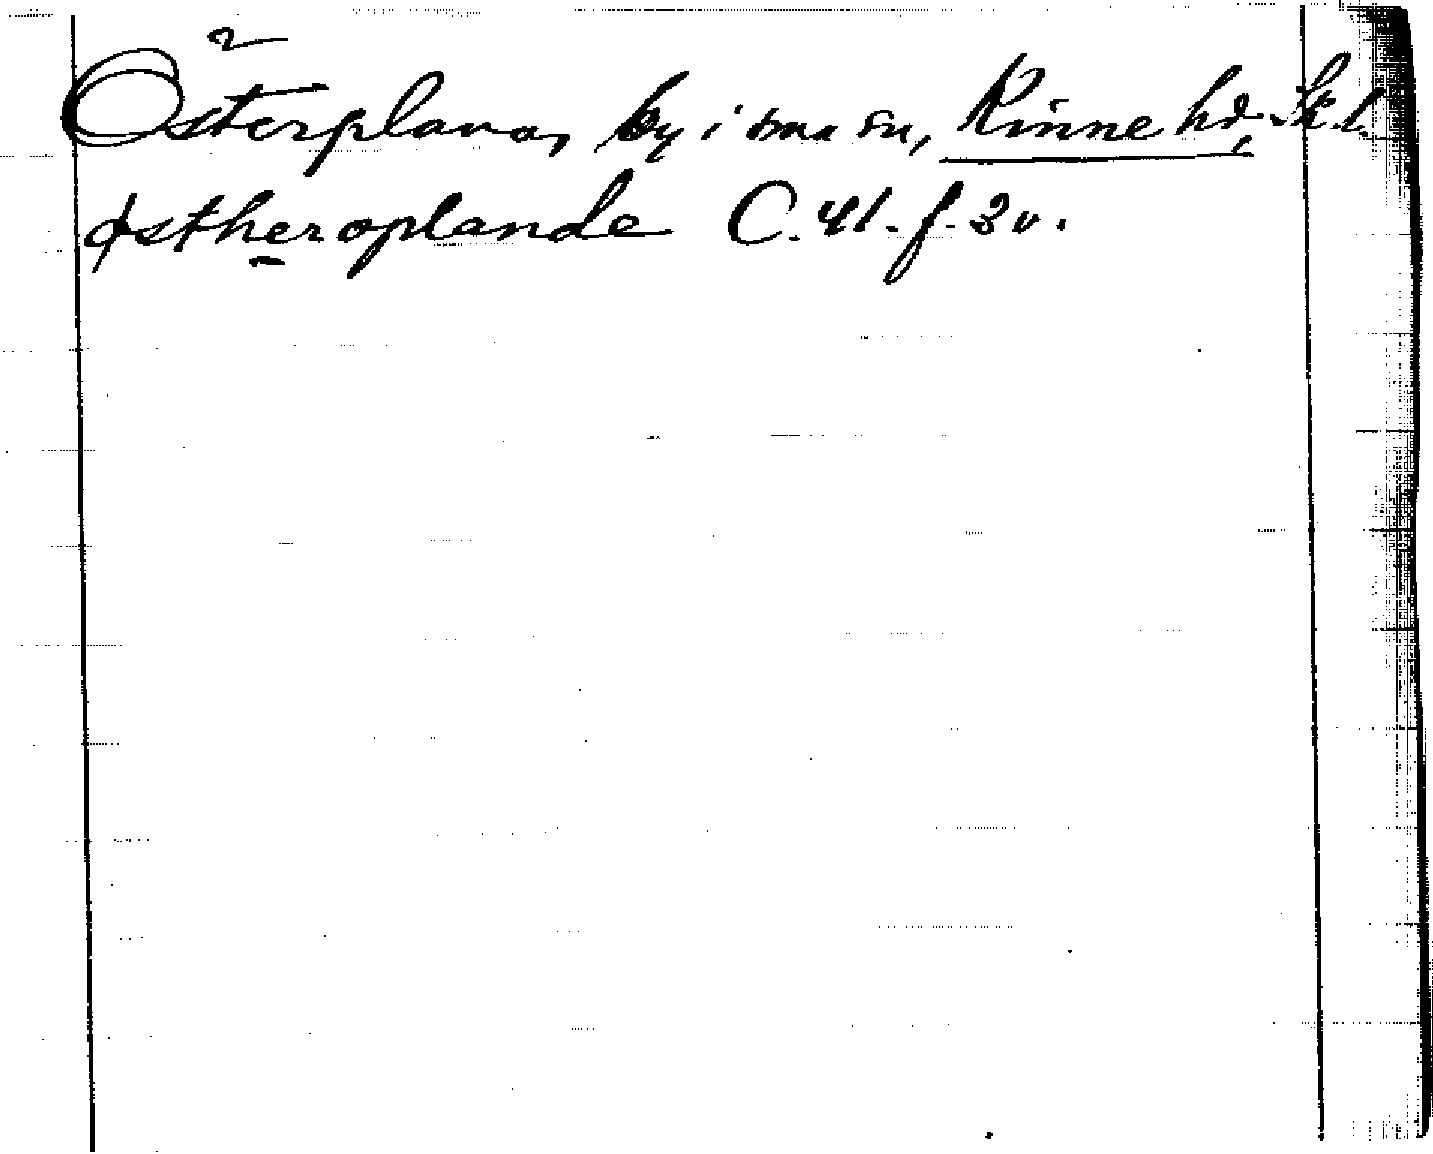 2
Österplana, by i s​ma sn, Kinne hd, Sk. l.
østheroplande C. 41. f. 3v.